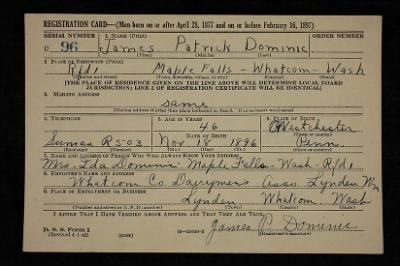 REGISTRATION CARD—(Men born on or after April 28, 1877 and on or before February 16, 1897)
SERIAL NUMBER 1. NAME (Print) ORDER NUMBER
U 96 James Patrick Dominic
(First) (Middle) (Last)
2. PLACE OF RESIDENCE (Print)
Rfd 1 Maple Falls - Whatcom - Wash
(Number and street) (Town, township, village, or city) (County) (State)
[THE PLACE OF RESIDENCE GIVEN ON THE LINE ABOVE WILL DETERMINE LOCAL BOARD
JURISDICTION; LINE 2 OF REGISTRATION CERTIFICATE WILL BE IDENTICAL]
3. MAILING ADDRESS
same
(Mailing address if other than place indicated on line 2. If same insert word same)
4. TELEPHONE 5. AGE IN YEARS 6. PLACE OF BIRTH
46 Westchester
DATE OF BIRTH (Town or county)
Sumas R 5-03 Nov 18 1896 Penn
(Exchange) (Number) (Mo.) (Day) (Yr.) (State or country)
7. NAME AND ADDRESS OF PERSON WHO WILL ALWAYS KNOW YOUR ADDRESS
Mrs. Ida Dominic Maple Falls - Wash - Rfd 1
8. EMPLOYER'S NAME AND ADDRESS
Whatcom Co Dairymens Asso. Lynden Wn
9. PLACE OF EMPLOYMENT OR BUSINESS
Lynden Whatcom Wash
(Number and street or R. F. D. number) (Town) (County) (State)
I AFFIRM THAT I HAVE VERIFIED ABOVE ANSWERS AND THAT THEY ARE TRUE.
James P. Dominic
D. S. S. Form 1
(Revised 4-1-42) (Registrant's signature)